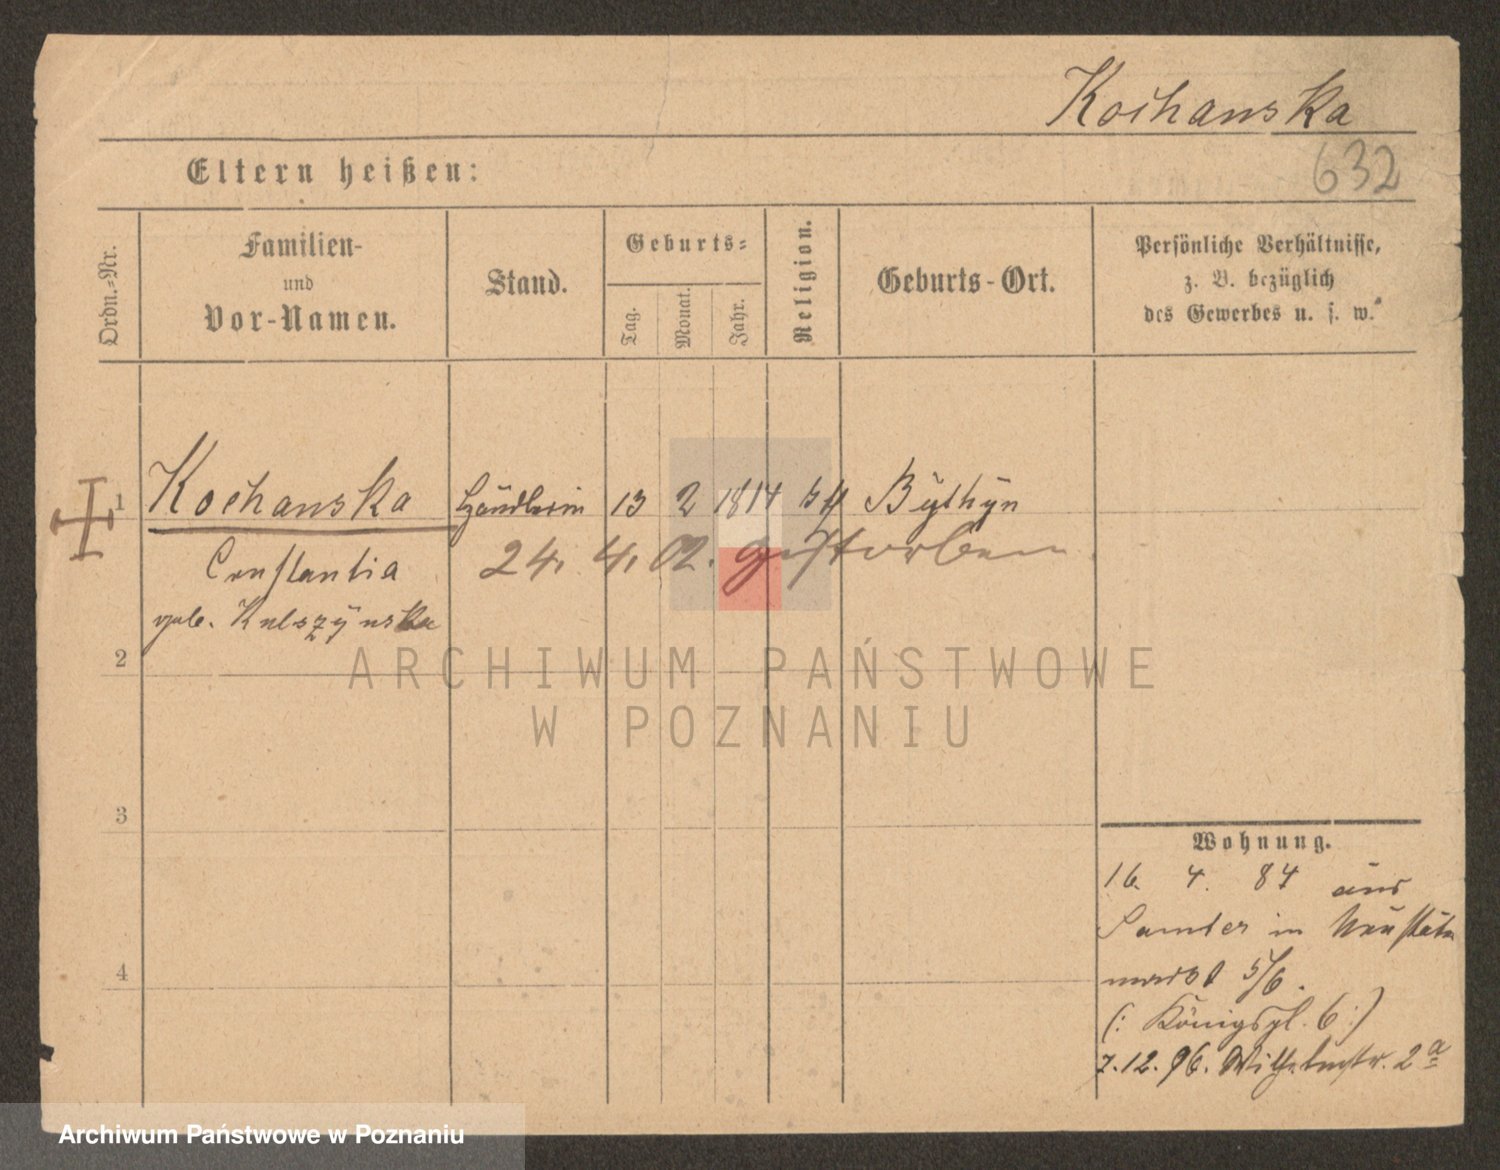 Kochanska
Eltern heißen:
632
Ordn.-Nr.
Familien-
und
Vor-Namen.
Stand.
Geburts-
Tag.
Monat.
Jahr.
Religion.
Geburts-Ort.
Persönliche Verhältnisse,
z. B. bezüglich
des Gewerbes u. s. w.
1 Kochanska Händlerin 13 2 1814 Bythyn
Constantia 24. 4. 02. gestorben
geb.
2
ARCHIWUM PAŃSTWOWE
W POZNANIU
3
Wohnung.
16. 4. 84 aus
Samter in Neustädter
markt 5/6.
4
(: Königspl. 6 :)
7.12.96. Wilhelmstr. 2a
Archiwum Państwowe w Poznaniu